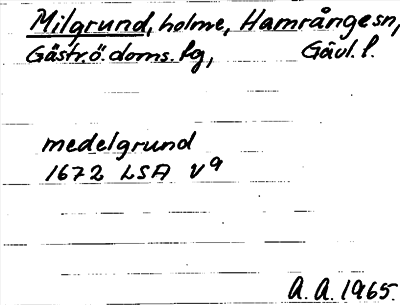 Milgrund, holme, Hamrånge sn,
Gästr.ö. doms. fg, Gävl. l.
medelgrund
1672 LSA V9
A. A. 1965.